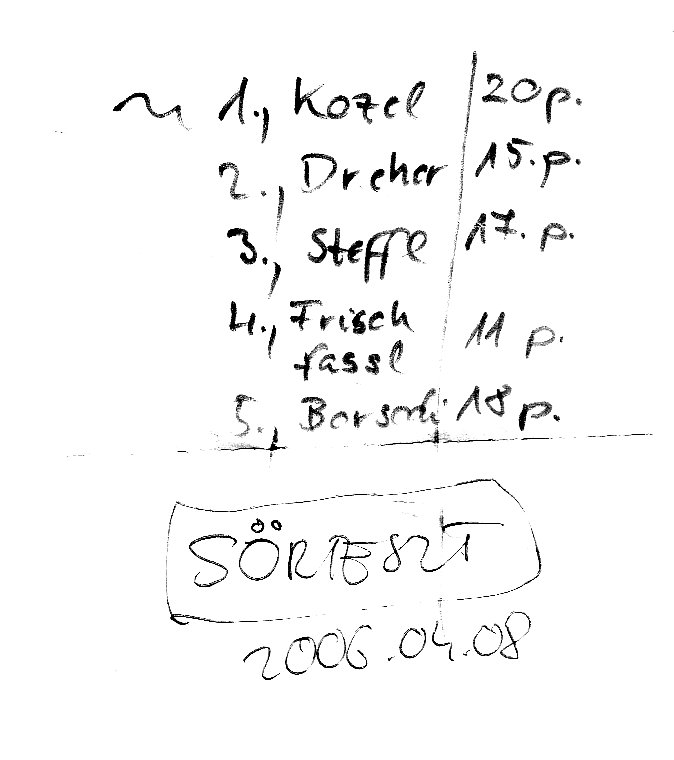 ~ 1., Kozel 20 p.
2., Dreher 15. p.
3., Steffl 17. p.
4., Frisch
fassl 11 p.
5., Borsodi 18 p.
SÖRTESZT
2006.04.08